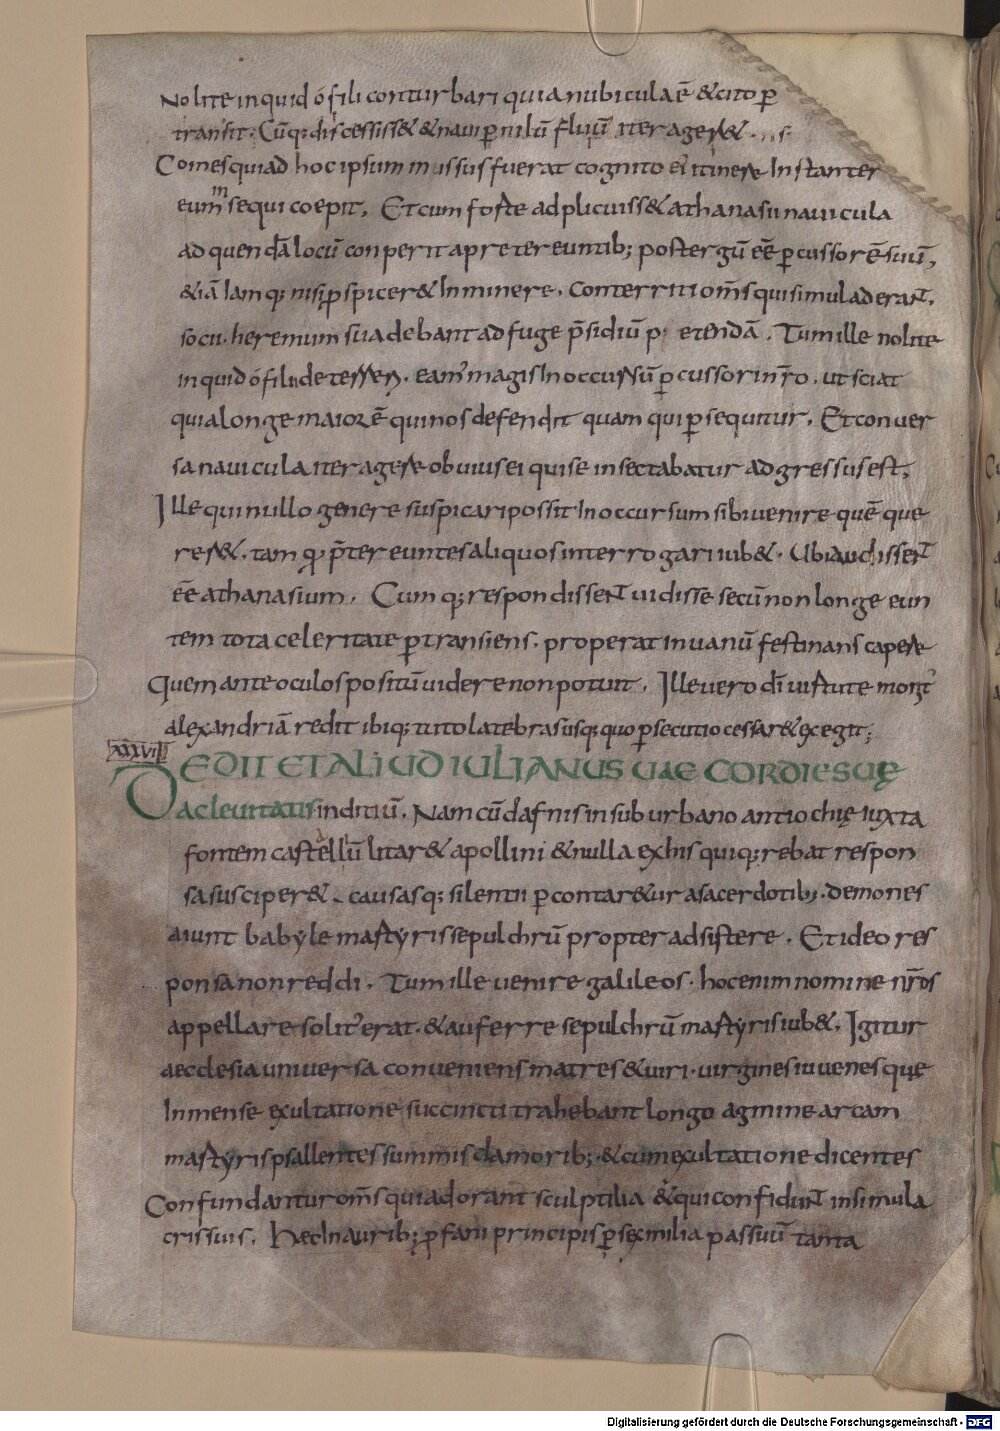 Nolite inquid ó fili conturbari quia nubicula ē & cito p̱
transit; Cūq; discessiss& & naui p̱ nilū fluiū iter ager&
Comes qui ad hoc ipsum missus fuerat cognito ei' itinere Instanter
eum sequi coepit, Et cum forte adplicuiss& athanasii nauicula
ad quendā locū conperit a pretereuntib; post ergū eē p̱cussorē suū,
& iā Iamq; nisi p̱spicer& Inminere. Conterriti om̄s qui simul aderant,
socii. heremum suadebant ad fuge p̄sidiū p etendā. Tum ille nolite
inquid ó filii deterreri. eam' magis In occursū p̱cussori nr̄o. ut sciat
quia longe maior ē qui nos defendit quam qui p̱sequitur, Et conuer
sa nauicula iter agere obuius ei qui se insectabatur adgressus est,
Ille qui nullo genere suspicari possit In occursum sibi uenire quē que
rer&, tam q p̄tereuntes aliquos interrogari iub&. Ubi audissent
eē athanasium, Cumq; respondissent uidisse secū non longe eun
tem tota celeritate p̱transiens. properat in uanū festinans capere
Quem ante oculos positū uidere non potuit, Ille uero dī uirtute monit'
alexandriā redit ibiq; tuto latebras usq; quo p̱secutio cessar& exegit;
XXXVII
DEDIT ET ALIUD IULIANUS UAECORDIE SUĘ
ac leuitatis inditiū, Nam cū dafnis in suburbano antiochię iuxta
fontem castellū litar& apollini & nulla ex his quiq; rebat respon
sa susciper&. causasq; silentii p̱contar&ur a sacerdotib;. demones
aiunt babyle martyris sepulchrū propter adsistere. Et ideo res
ponsa non reddi. Tum ille uenire galileos. hoc enim nomine nr̄os
appellare solit' erat. & auferre sepulchrū martyris iub&, Igitur
aecclesia uniuersa conueniens matres & uiri. uirgines iuuenesque
Inmense exultatione succincti trahebant longo agmine arcam
martyris psallentes summis clamorib; & cum exultatione dicentes
Confundantur om̄s qui adorant sculptilia & qui confidunt in simula
cris suis, Hec In aurib; p̱fani principis p̱ sex milia passuū tanta
Digitalisierung gefördert durch die Deutsche Forschungsgemeinschaft - DFG